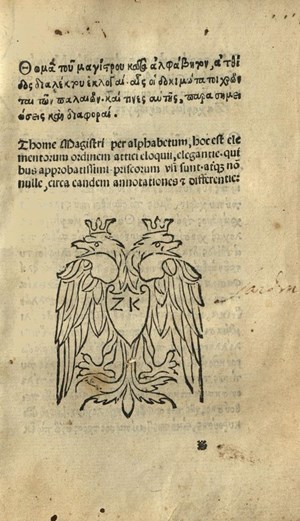 Θωμᾶ τοῦ μαγίστρου κατὰ ἀλφάβητον, ἀτθί
δος διαλέκτου ἐκλογαί. αἷς οἱ δοκιμώτατοι χρῶν
ται τῶν παλαιῶν. καί τινες αὐτῆς, παρασημει
ώσεις καὶ διαφοραί.
Thome Magistri per alphabetum, hoc est ele
mentorum ordinem attici eloquii, elegantie, qui
bus approbatissimi priscorum usi sunt, atque no
nulle, circa eandem annotationes & differentie:
Z K